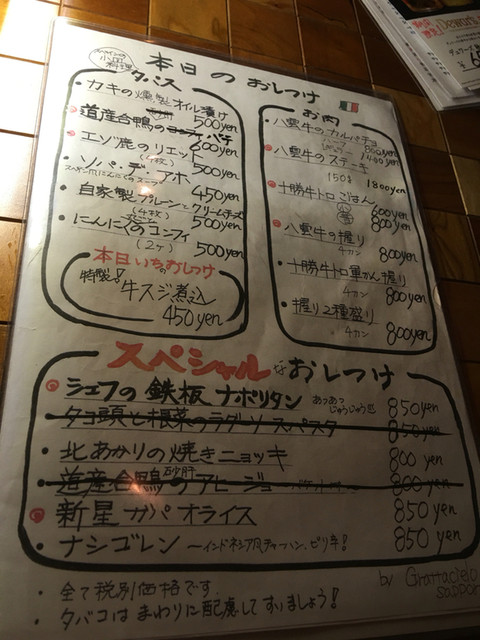 本日のおしつけ
スペインの小皿料理
タパス
カキの燻製オイル漬け
500yen
道産合鴨のコンフィパテ
600yen
エゾ鹿のリエット
(4枚) 500yen
ソパ・デ・アホ
450yen
自家製プレーンとクリームチーズ
(4枚) 500yen
にんにく丸ごとコンフィ
(2ヶ) 500yen
本日いちおしつけ
特製!の
牛スジ煮込
450yen
お肉
八雲牛のカルパチョ
800yen
八雲牛のステーキ
1400yen
150g 1800yen
十勝牛トロごはん
小 600yen
普 800yen
八雲牛の握り
4カン 800yen
十勝牛トロ軍かん握り
4カン 800yen
握り2種盛り
4カン 800yen
スペシャルなおしつけ
シェフの鉄板ナポリタン あつあつじゅうじゅう 850yen
タコ頭と根菜のラグーソースパスタ 850yen
北あかりの焼きニョッキ 800yen
道産合鴨砂肝のアヒージョ 800yen
新星ガパオライス 850yen
ナシゴレン ~インドネシア風チャーハン、ピリ辛! 850yen
by Grattacielo
sapporo
・全て税別価格です.
・タバコはまわりに配慮してすいましょう!